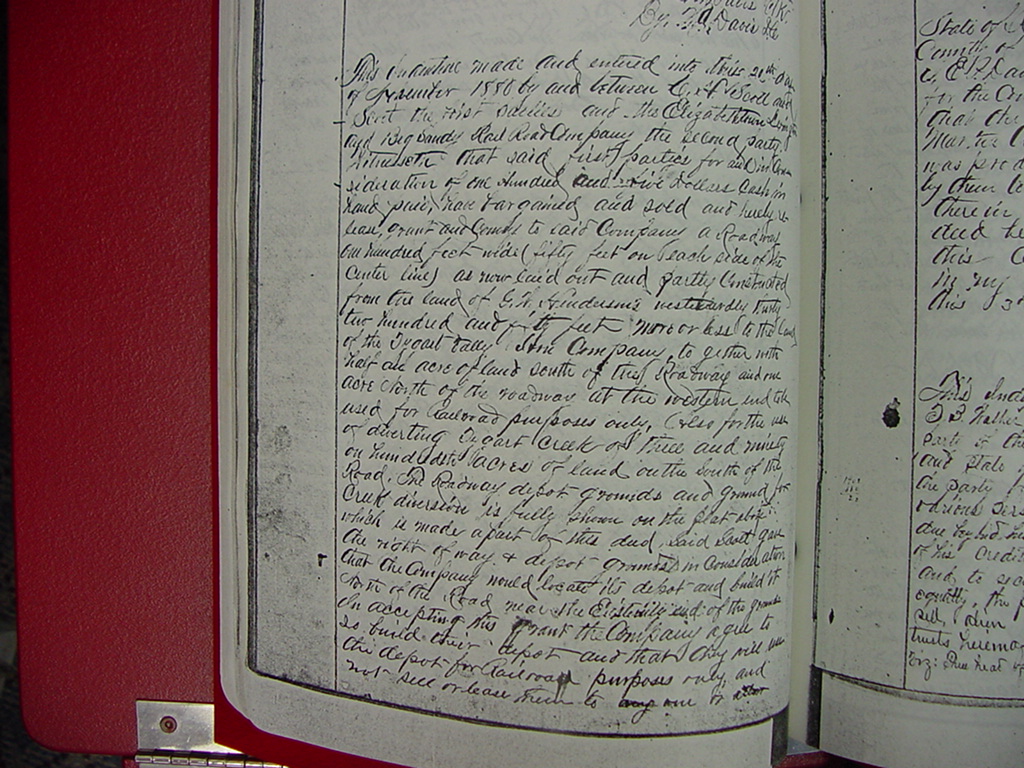 By. G. D. Davis
This Indenture made and entered into this 20th day
of November 1880 by and between C. A. Scott and
Scott the first parties and the Elizabethtown Lexington
and Big Sandy Rail Road Company the second party
Witnesseth that said first parties for and in Con
sideration of one Hundred and five Dollars Cash in
hand paid, have bargained and sold and hereby re
lease, grant and Convey to said Company a Roadway
one hundred feet wide (fifty feet on each side of the
Center line) as now laid out and partly Constructed
from the land of G. W. Henderson's westwardly thirty
two hundred and fifty feet more or less to the land
of the Tygart Valley Iron Company, to gether with
half an acre of land South of this Roadway and one
acre North of the roadway at the western end to be
used for Railroad purposes only, Also for the use
of diverting Tygart Creek of three and ninety
on hundredths acres of land on the south of the
Road. The Roadway depot grounds and ground for
Creek diversion is fully shown on the plat above
which is made a part of this deed. Said Scott gave
the right of way & depot grounds in Consideration
that the Company would locate its depot and build it
North of the Road near the end of the grounds
In accepting this grant the Company agree to
so build their depot and that they will use
the depot for Railroad purposes only, and
not sell or lease them to any one or
State of
County of
for the
that the
was prod
by them
therein
and
this
in my
this 3
This Ind
part of the
and State
the party
various
due
of his Credit
and to
equally, the
sell,
trusts